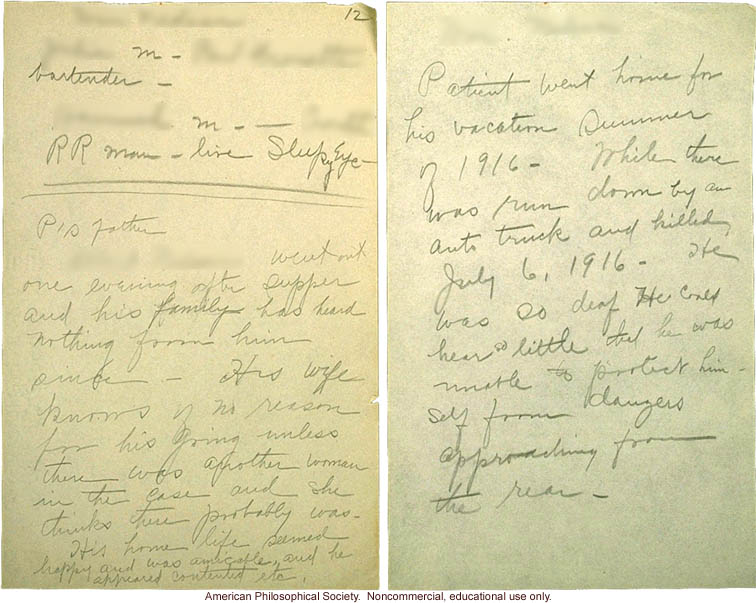 12
m -
bartender -
m - -
RR man - live Sleepy Eye -
P's father
went out
one evening after supper
and his family has heard
nothing from him
since. - His wife
knows of no reason
for his going unless
there was another woman
in the case and she
thinks there probably was -
His home life seemed
happy and was amicable, and he
appeared contented etc.
Patient went home for
his vacation summer
of 1916 - While there
was run down by an
auto truck and killed,
July 6, 1916 - He
was so deaf He could
hear so little that he was
unable to protect him-
self from dangers
approaching from
the rear -
American Philosophical Society. Noncommercial, educational use only.